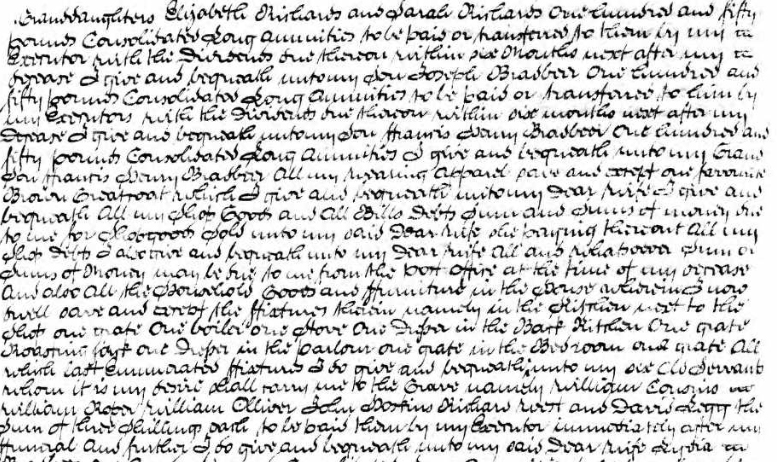 Granddaughters Elizabeth Richards and Sarah Richards One hundred and fifty
pounds Consolidated Long Annuities to be paid or transferred to them by my
Executor with the Dividends due thereon within six Months next after my
decease I give and bequeath unto my Son Joseph Bradbeer One hundred and
fifty pounds Consolidated Long Annuities to be paid or transferred to him by
my Executors with the Dividends due thereon within six months next after my
decease I give and bequeath unto my Son Francis Henry Bradbeer One hundred and
fifty pounds Consolidated Long Annuities I give and bequeath unto my Grand
Son Francis Henry Bradbeer All my wearing Apparel save and except one favorite
Brown Greatcoat which I give and bequeath unto my Dear Wife I give and
bequeath All my Shop Goods and All Bills Debts Sum and Sums of money due
to me for Shopgoods Sold unto my said Dear Wife she paying thereout All my
Shop Debts I also give and bequeath unto my Dear Wife All and whatsoever Sum or
Sums of Money may be due to me from the Post Office at the time of my decease
And also All the Household Goods and ffurniture in the House wherein I now
dwell save and except the ffixtures therein namely in the Kitchen next to the
Shop one grate One boiler one Stove One Dresser in the Back Kitchen One grate
Roasting Jack one Dresser in the parlour one grate in the Bedroom one grate All
which last enumerated ffixtures I do give and bequeath unto my six Old Servants
whom it is my desire shall carry me to the Grave namely William Cousins
William Roper William Olliver John Hoskins Richard West and David Legg the
Sum of three Shillings each to be paid them by my Executor immediately after my
ffuneral And further I do give and bequeath unto my said Dear Wife Lydia